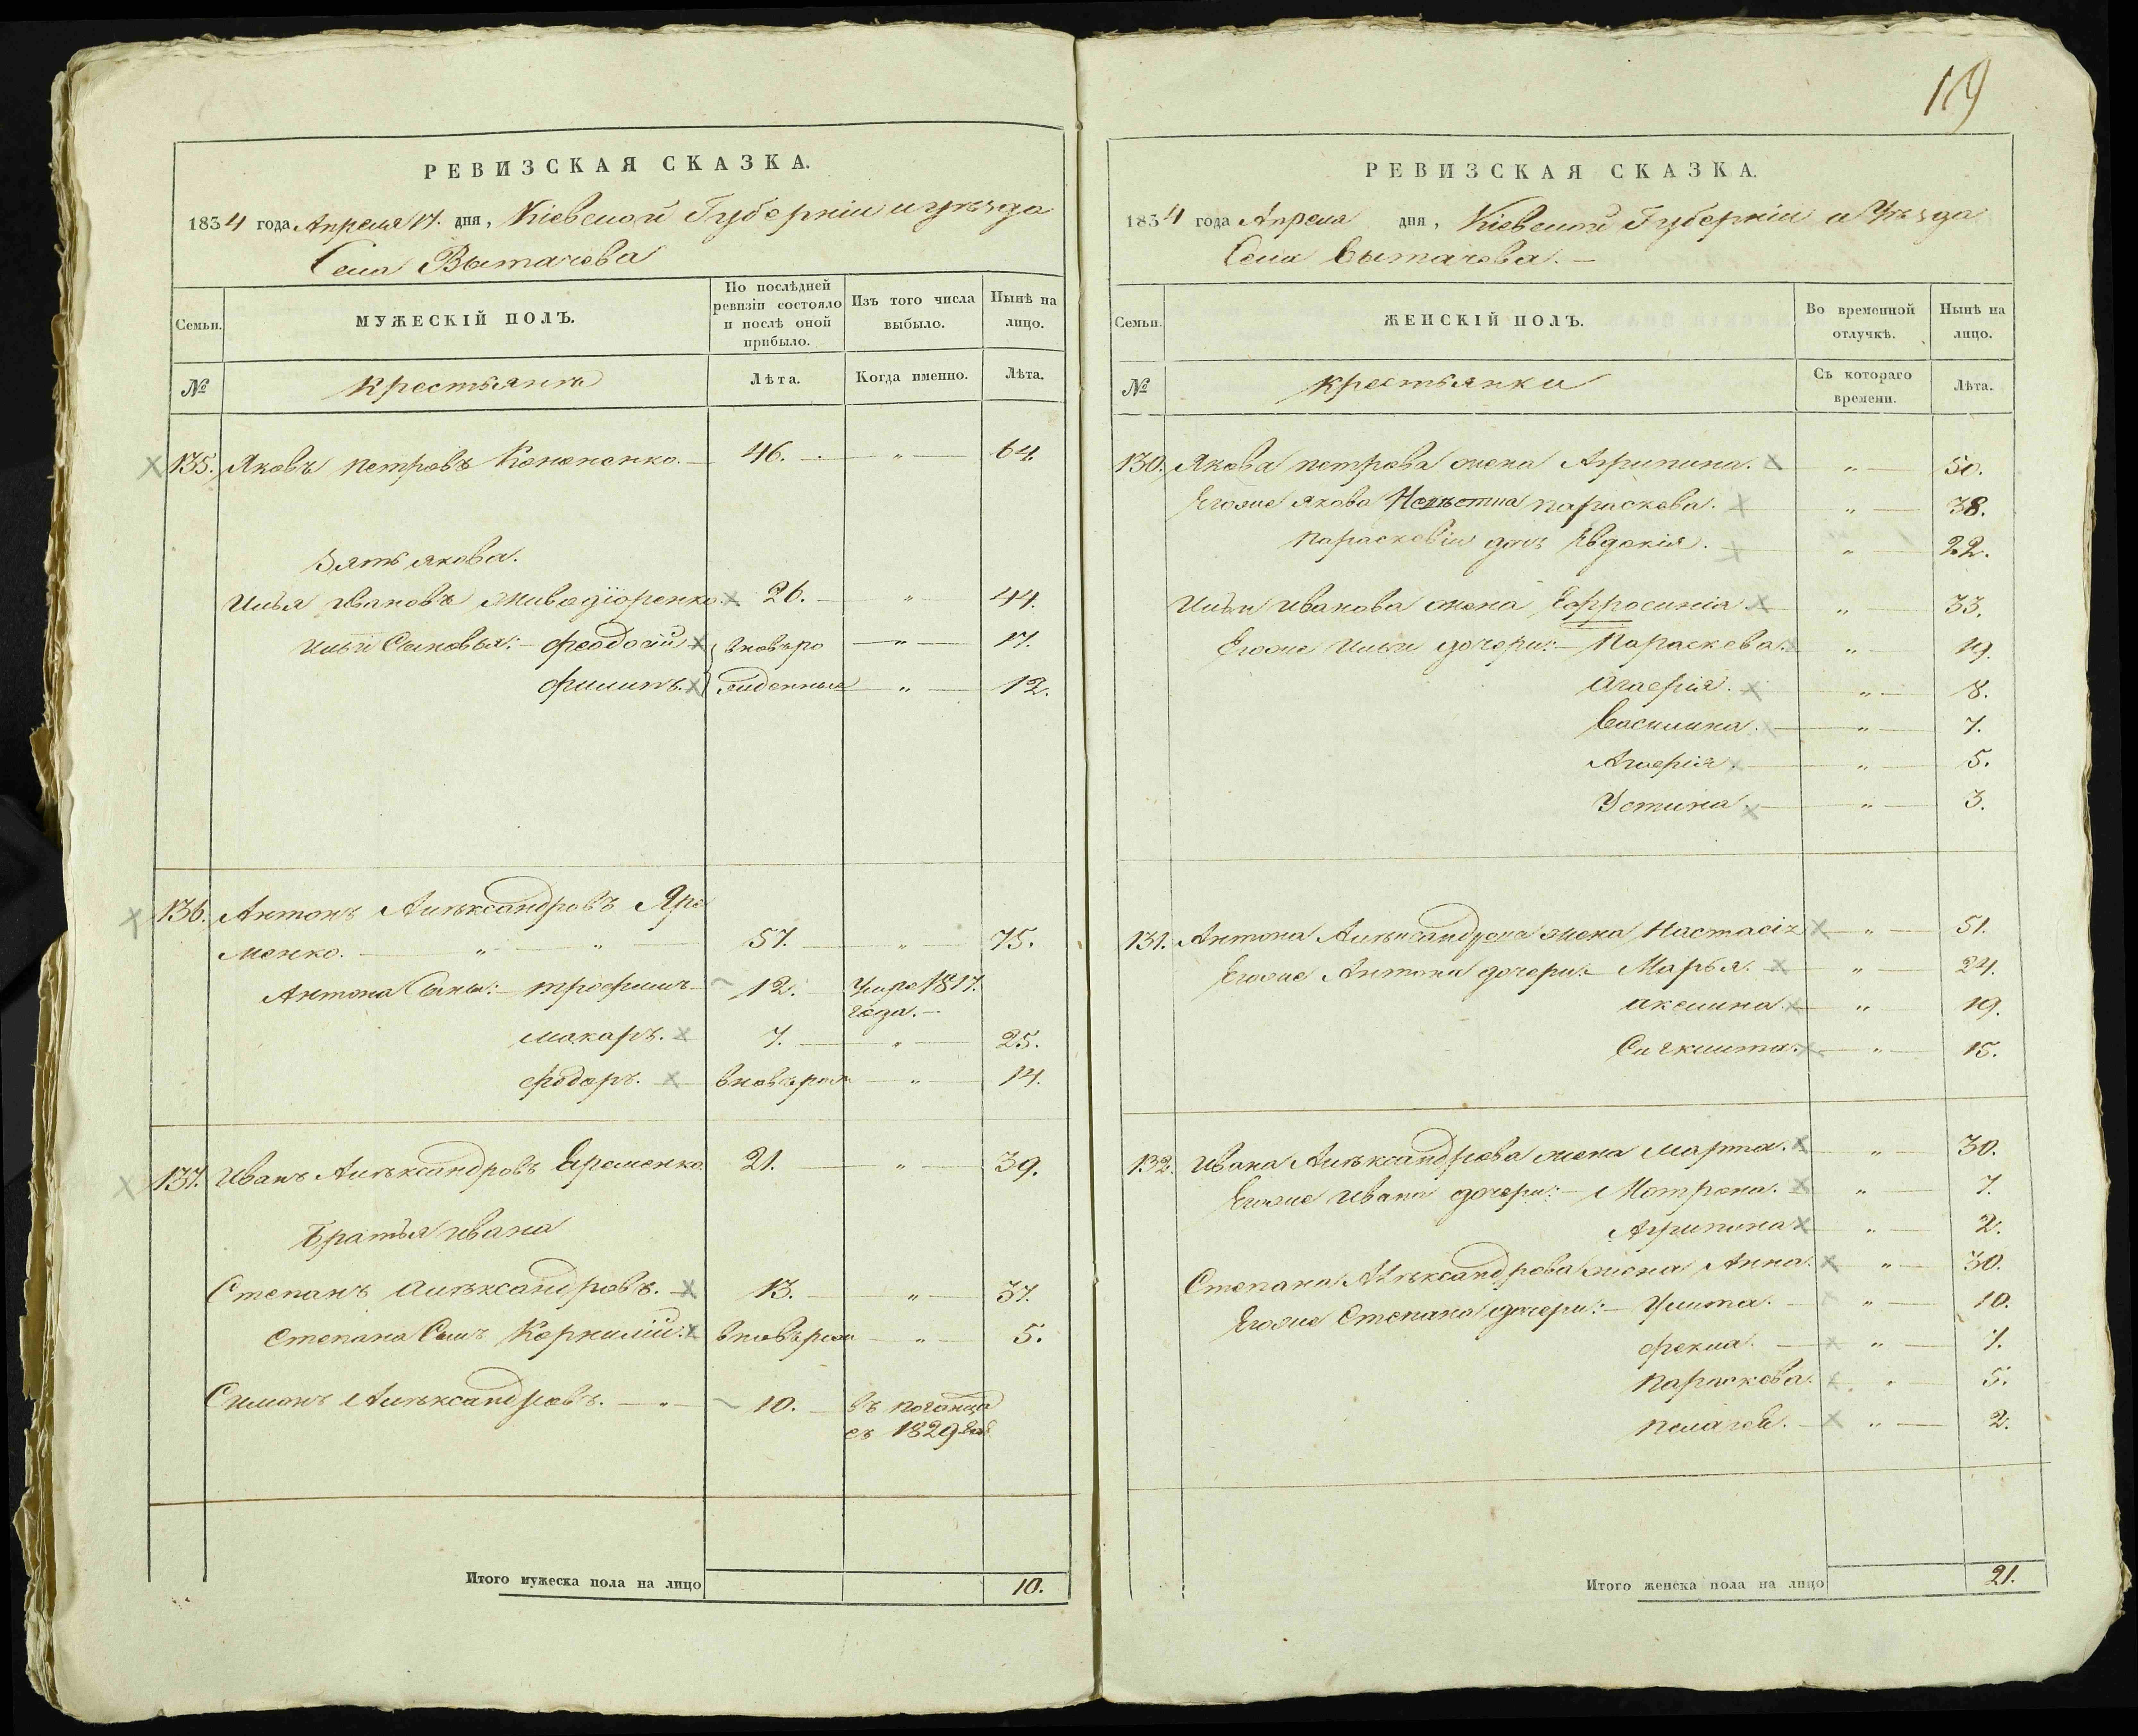 РЕВИЗСКАЯ СКАЗКА.
1834 года Апреля 17. дня, Кіевской Губерніи и уѣзда
Села Вытачева
Семьи.
МУЖЕСКІЙ ПОЛЪ.
По послѣдней ревизіи состояло и послѣ оной прибыло.
Изъ того числа выбыло.
Нынѣ на лицо.
№
крестьянъ
Лѣта.
Когда именно.
Лѣта.
135. Яковъ петровъ Кононенко. 46. " 64.
Зять якова.
Илья Ивановъ 26. " 44.
Ильи Сыновья: феодосій вновъро " 17.
филипъ. жденные " 12.
136. Антонъ Алѣксандровъ Яре
менко. " " 57. " 75.
Антона Сыны: трофимъ 12. Умре 1817.
года.
макаръ. 7. " 25.
фѣдоръ. вновърож " 14.
137. Иванъ Алѣксандровъ Еременко 21. " 39.
братья ивана
Степанъ алѣксандровъ. 13. " 31.
степана Сынъ Корнилій. вновърож " 5.
Симонъ Алѣксандровъ. " 10. въ
съ 1829
Итого мужеска пола на лицо 10.
119
РЕВИЗСКАЯ СКАЗКА.
1834 года Апреля дня, Кіевской Губерніи и Уѣзда
Села Вытачева.
Семьи.
ЖЕНСКІЙ ПОЛЪ.
Во временной отлучкѣ.
Нынѣ на лицо.
№
крестьянки
Съ котораго времени.
Лѣта.
130. Якова петрова жена Агрипина. " 50.
Егоже якова Невѣстка параскева. " 38.
параскевіи дочь Евдокія. " 22.
Ильи иванова жена Ефросинія " 33.
Егоже Ильи дочери: Параскева. " 19.
" 8.
Василина. " 7.
" 5.
Устина. " 3.
131. Антона Алѣксандрова жена Настасія " 51.
Егоже Антона дочери: Марья. " 24.
аксимна. " 19.
" 15.
132. Ивана Алѣксандрова жена марта. " 30.
Егоже ивана дочери: Матрона. " 7.
Агрипина " 2.
Степана Алѣксандрова жена Анна. " 30.
Егоже Степана дочери: Улита. " 10.
фекла. " 7.
параскева. " 5.
пелагея. " 2.
Итого женска пола на лицо 21.